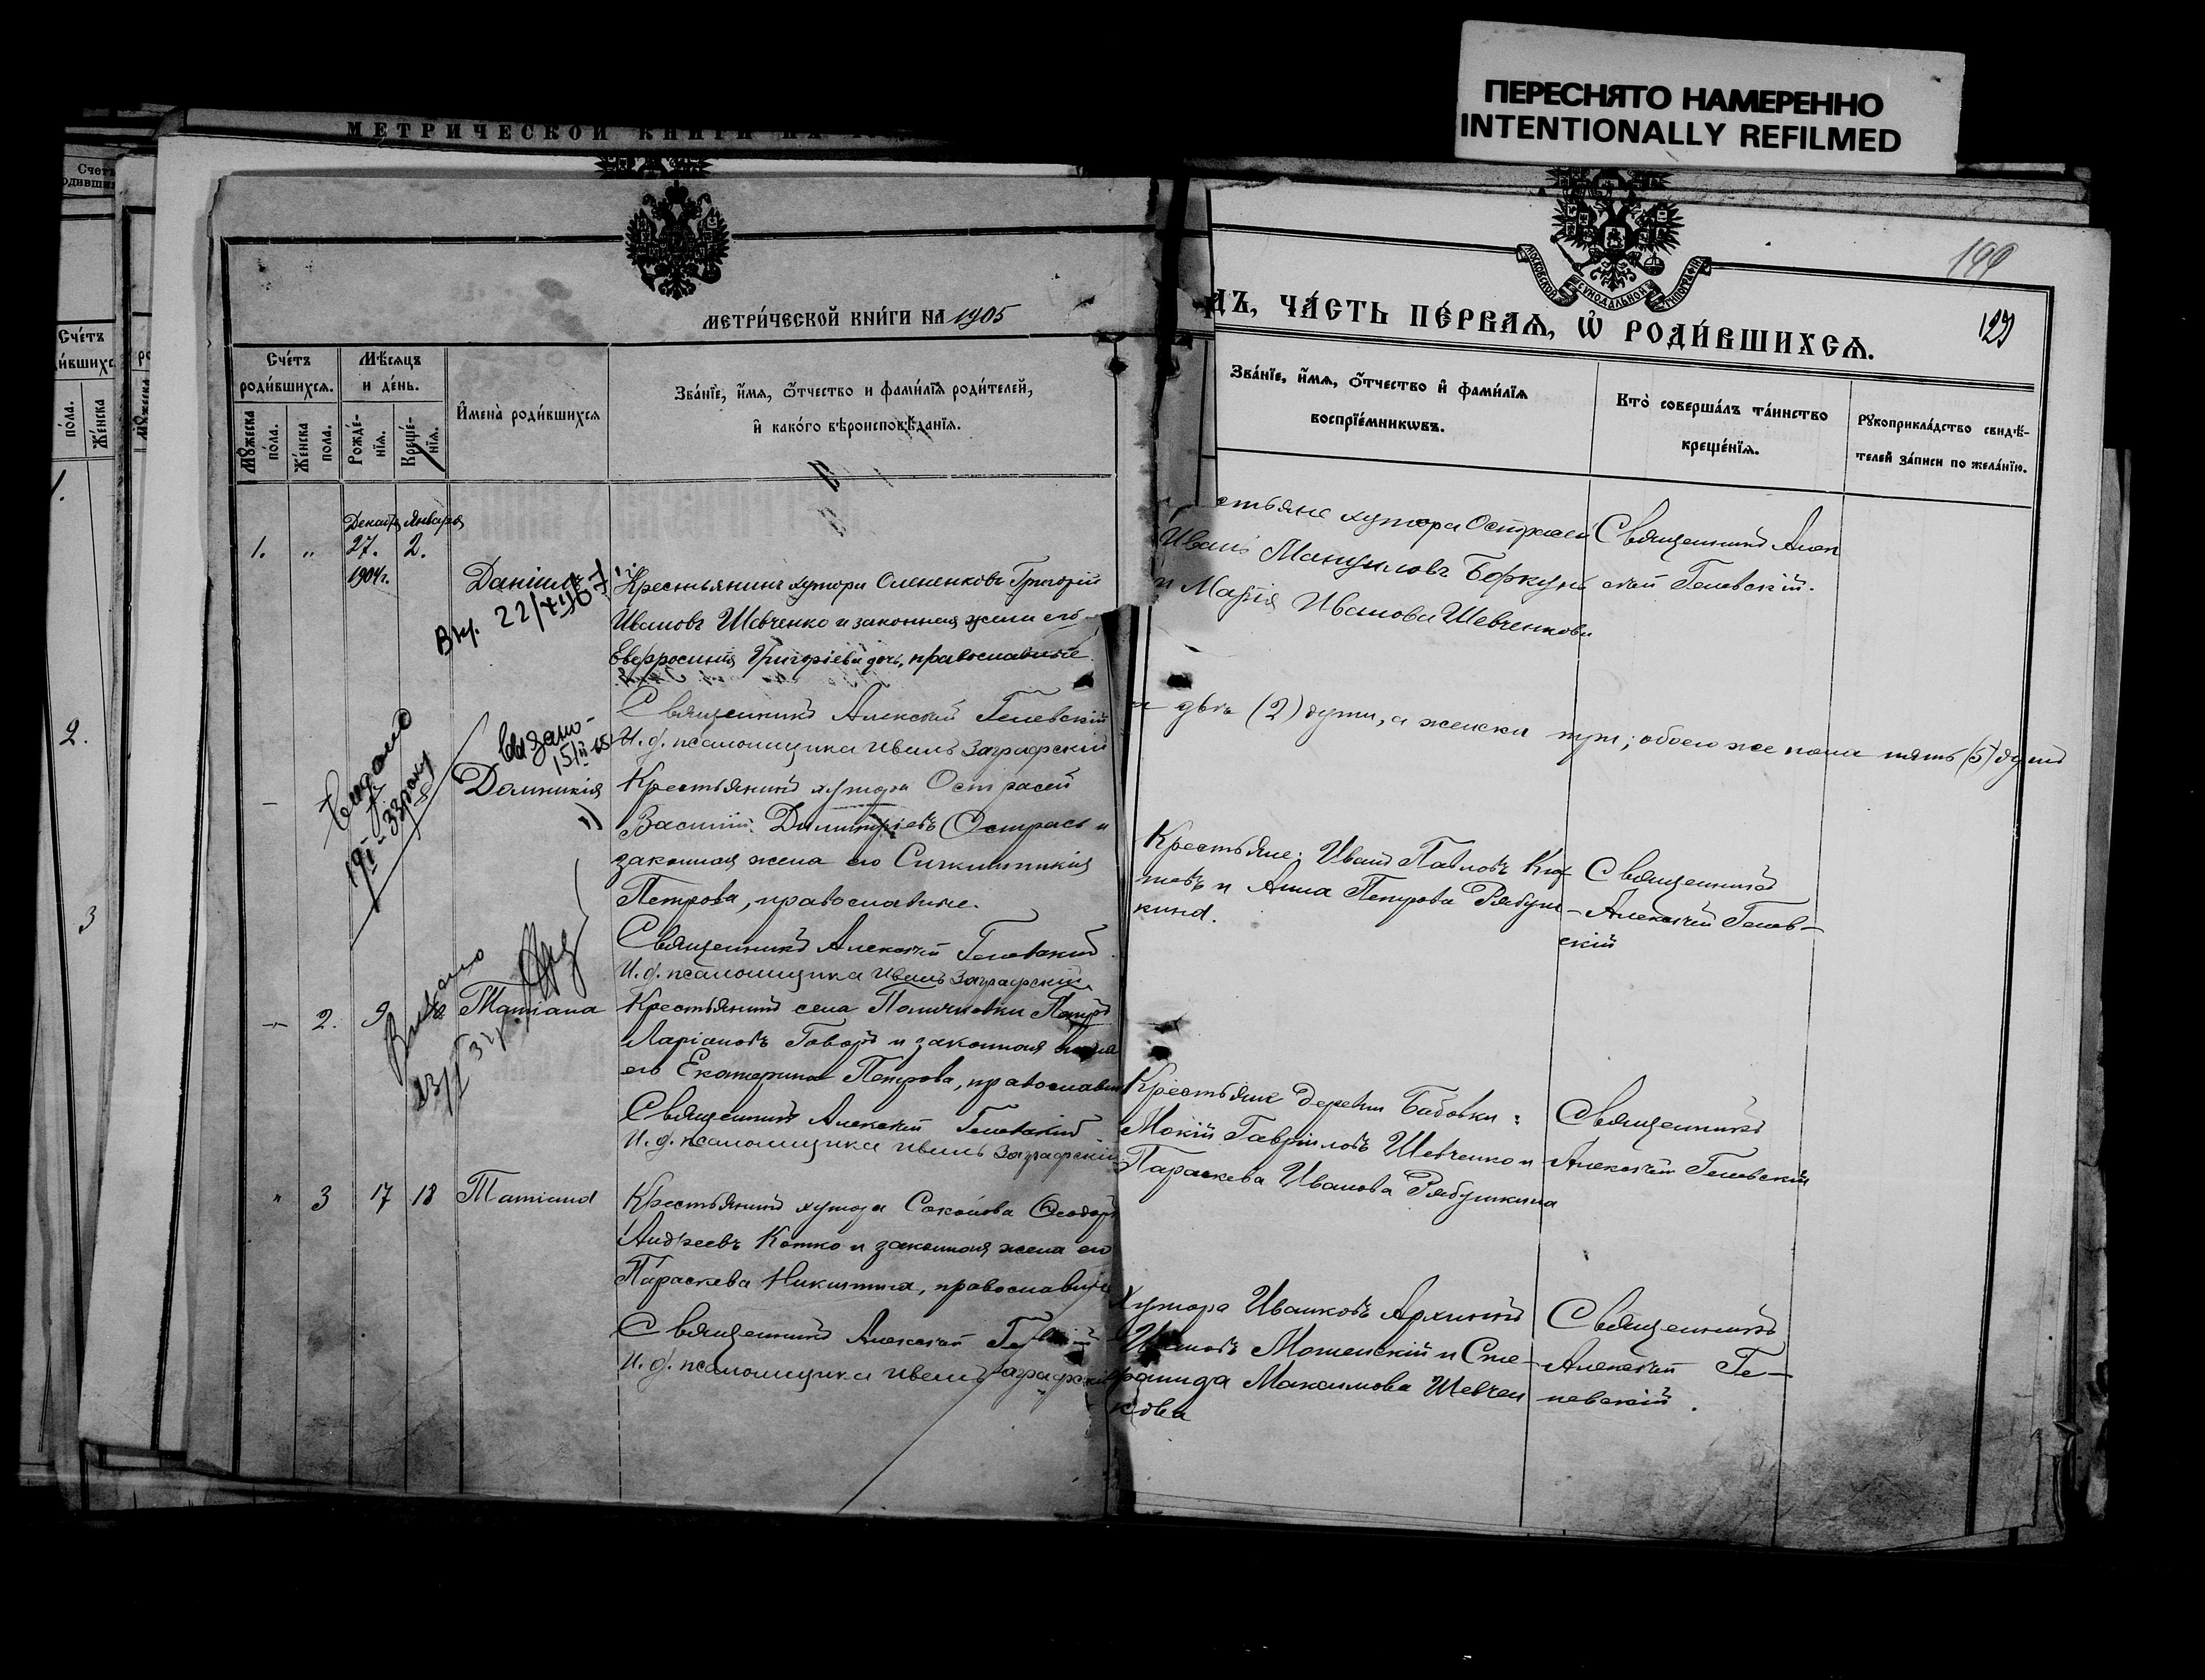 ПЕРЕСНЯТО НАМЕРЕННО
INTENTIONALLY REFILMED
МЕТРИЧЕСКОЙ КНИГИ НА
Счетъ
Сче́тъ
по́ла.
Же́нска
1.
2.
3
МЕТРИ́ЧЕСКОЙ КНИ́ГИ НА 1905
Сче́тъ
роди́вшихсѧ.
Мѣ́сѧцъ
и де́нь.
Мꙋ́жеска
по́ла.
Же́нска
по́ла.
Рожде́-
нїѧ.
Креще́-
нїѧ.
И҆мена̀ роди́вшихсѧ
Зва́нїе, и҆́мѧ, ѻ҆́тчество и фами́лїѧ роди́телей,
и҆ како́гѡ вѣроисповѣ́данїѧ.
1.
"
Декабря Января
27.
2.
1904г.
Даніилъ
Крестьянинъ хутора Олененковъ Григорій
Ивановъ Шевченко и законная жена его
Евфросинія Григоріева дочь, православные
Священникъ Алексій Гелевскій
И. д. псаломщика Иванъ Заграфскій
Видано
Домникія
Крестьянинъ хутора Острасей
Василій Димитріевъ Острась и
законная жена его
Петрова, православные.
Священникъ Алексій Гелевскій
И. д. псаломщика Иванъ Заграфскій
2.
9
Татіана
Крестьянинъ села Петръ
Ларіоновъ Говоръ и законная жена
его Екатерина Петрова, православн
Священникъ Алексій Гелевскій
И. д. псаломщика Иванъ Заграфскій
"
3
17
18
Татіана
Крестьянинъ хутора Соколова Ѳеодоръ
Андреевъ Котко и законная жена его
Параскева Никитина, православные
Священникъ Алексій
И. д. псаломщика Иванъ Заграфскій
199
129
МОСКОВСКОЙ СѴНОДАЛЬНОЙ ТИПОГРАФІИ
ДЪ, ЧА́СТЬ ПЕ́РВАѦ, Ѽ РОДИ́ВШИХСѦ.
Зва́нїе, и҆́мѧ, ѻ҆́тчество и҆ фами́лїѧ
воспрїе́мникѡвъ.
Кто̀ соверша́лъ та́инство
креще́нїѧ.
Рꙋкоприкла́дство свидѣ́-
телей за́писи по жела́нїю.
стьяне хутора Острасей
Иванъ Мануиловъ Боркунъ
и Марія Иванова Шевченкова
Священникъ Алек
сѣй Гелевскій.
двѣ (2) души, а женска три; обоего же пола пять (5) душъ
Крестьяне: Иванъ Павловъ
и Анна Петрова Рябуш-
кина.
Священникъ
Алексѣй Гелев-
скій
Крестьяне деревни Бабовки:
Мокій Гавріиловъ Шевченко и
Параскева Иванова Рябушкина
Священникъ
Алексѣй Гелевскій
Хутора Иванковъ Архипъ
Ивановъ Мошенскій и Сте-
фанида Максимова Шевчен
кова
Священникъ
Алексѣй Ге-
левскій.